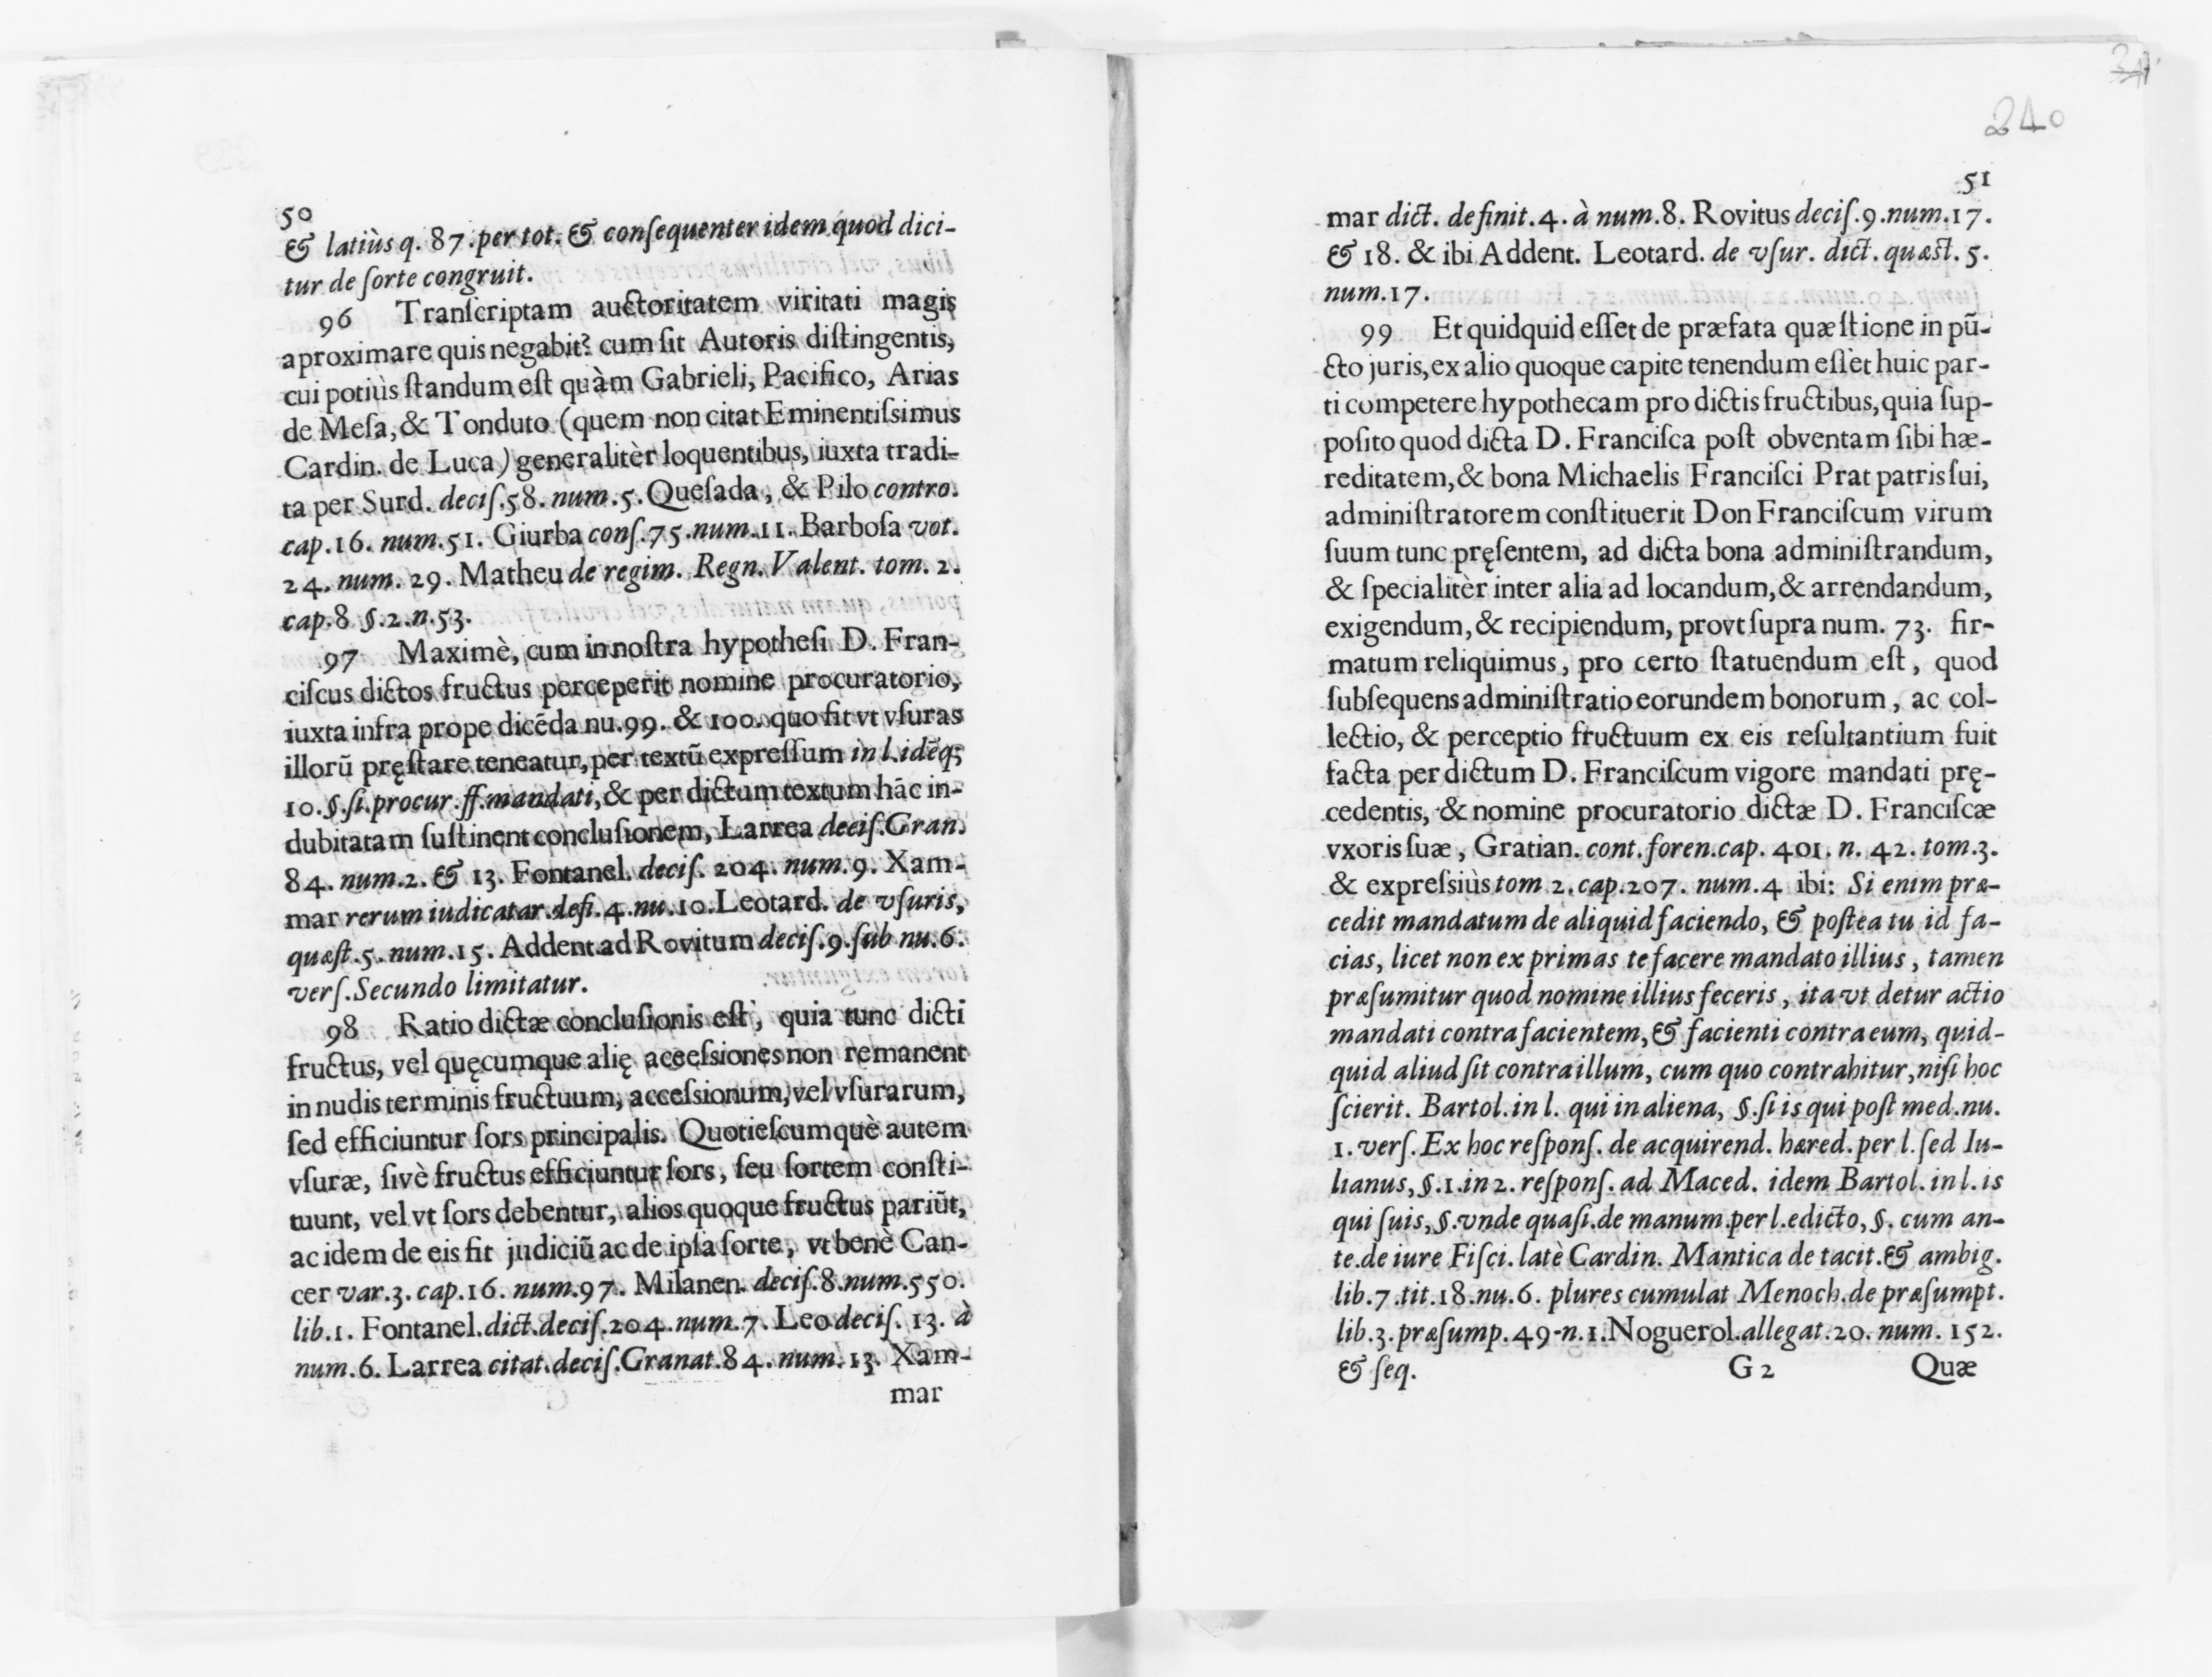 50
& latiùs q. 87. per tot. & conſequenter idem quod dici-
tur de ſorte congruit.
96 Tranſcriptam auctoritatem viritati magis
aproximare quis negabit? cum ſit Autoris diſtingentis,
cui potiùs ſtandum eſt quàm Gabrieli, Pacifico, Arias
de Meſa, & Tonduto (quem non citat Eminentiſsimus
Cardin. de Luca) generalitèr loquentibus, iuxta tradi-
ta per Surd. deciſ.58. num.5. Queſada, & Pilo contro.
cap.16. num.51. Giurba conſ.75.num.11. Barboſa vot.
24. num. 29. Matheu de regim. Regn. Valent. tom. 2.
cap.8 §.2.n.53.
97 Maximè, cum in noſtra hypotheſi D. Fran-
ciſcus dictos fructus perceperit nomine procuratorio,
iuxta infra prope dicēda nu.99. & 100. quo fit vt vſuras
illorū pręſtare teneatur, per textū expreſſum in l. idēq;
10.§.ſi.procur.ff.mandati, & per dictum textum hāc in-
dubitatam ſuſtinent concluſionem, Larrea deciſ.Gran.
84. num.2. & 13. Fontanel. deciſ. 204. num.9. Xam-
mar rerum iudicatar.defi.4.nu.10. Leotard. de vſuris,
quæſt.5. num.15. Addent. ad Rovitum deciſ.9.ſub nu.6.
verſ. Secundo limitatur.
98 Ratio dictæ concluſionis eſt, quia tunc dicti
fructus, vel quęcumque alię acceſsiones non remanent
in nudis terminis fructuum, acceſsionum, vel vſurarum,
ſed efficiuntur ſors principalis. Quotieſcumquè autem
vſuræ, ſivè fructus efficiuntur ſors, ſeu ſortem conſti-
tuunt, vel vt ſors debentur, alios quoque fructus pariūt,
ac idem de eis fit judiciū ac de ipſa ſorte, vt benè Can-
cer var.3. cap.16. num.97. Milanen. deciſ.8.num.550.
lib.1. Fontanel. dict.deciſ.204.num.7. Leo deciſ. 13. à
num.6. Larrea citat.deciſ.Granat.84. num.13. Xam-
mar
240
51
mar dict. definit.4. à num.8. Rovitus deciſ.9.num.17.
& 18. & ibi Addent. Leotard. de vſur. dict. quæſt. 5.
num.17.
99 Et quidquid eſſet de præfata quæſtione in pū-
cto juris, ex alio quoque capite tenendum eſſèt huic par-
ti competere hypothecam pro dictis fructibus, quia ſup-
poſito quod dicta D. Franciſca poſt obventam ſibi hæ-
reditatem, & bona Michaelis Franciſci Prat patris ſui,
adminiſtratorem conſtituerit Don Franciſcum virum
ſuum tunc pręſentem, ad dicta bona adminiſtrandum,
& ſpecialitèr inter alia ad locandum, & arrendandum,
exigendum, & recipiendum, provt ſupra num. 73. fir-
matum reliquimus, pro certo ſtatuendum eſt, quod
ſubſequens adminiſtratio eorundem bonorum, ac col-
lectio, & perceptio fructuum ex eis reſultantium fuit
facta per dictum D. Franciſcum vigore mandati pre̜-
cedentis, & nomine procuratorio dictæ D. Franciſcæ
vxoris ſuæ, Gratian. cont.foren.cap. 401. n. 42. tom.3.
& expreſsiùs tom 2. cap.207. num.4 ibi: Si enim præ-
cedit mandatum de aliquid faciendo, & poſtea tu id fa-
cias, licet non ex primas te facere mandato illius, tamen
præſumitur quod nomine illius feceris, ita vt detur actio
mandati contra facientem, & facienti contra eum, quid-
quid aliud ſit contra illum, cum quo contrahitur, niſi hoc
ſcierit. Bartol. in l. qui in aliena, §.ſi is qui poſt med.nu.
1. verſ. Ex hoc reſponſ. de acquirend. hæred. per l. ſed Iu-
lianus, §.1. in 2. reſponſ. ad Maced. idem Bartol. in l. is
qui ſuis, §.vnde quaſi.de manum.per l.edicto, §. cum an-
te.de iure Fiſci. latè Cardin. Mantica de tacit.& ambig.
lib.7.tit.18.nu.6. plures cumulat Menoch.de præſumpt.
lib.3.præſump.49-n.1. Noguerol. allegat.20. num. 152.
& ſeq. G 2 Quæ